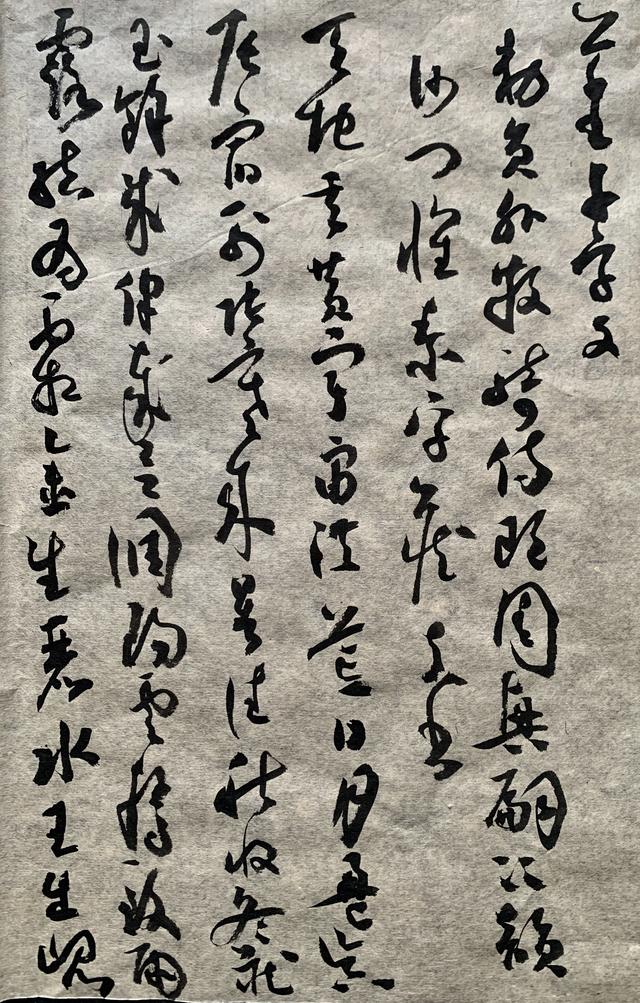 千字文
勅員外散騎侍郎周興嗣次韻
沙門懷素字藏真書
天地玄黃宇宙洪荒日月盈昃
辰宿列張寒來暑往秋收冬藏
閏餘成歲律呂調陽雲騰致雨
露結為霜金生麗水玉出崑